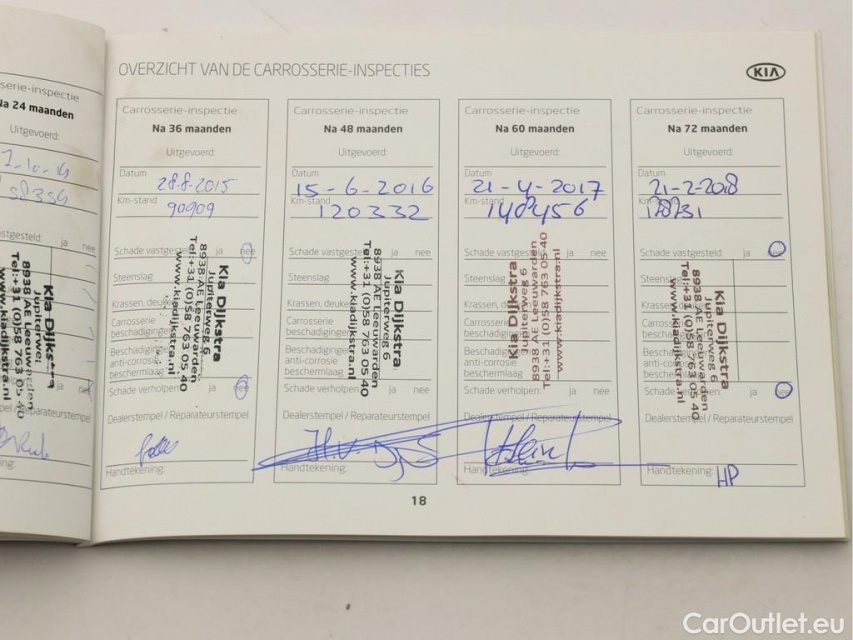 OVERZICHT VAN DE CARROSSERIE-INSPECTIES
KIA
serie-inspectie
Na 24 maanden
Uitgevoerd:
58354
stgesteld: ja nee
Kia
Jupiterweg
8938 AE Leeuwarden
Tel:+31 (0)58 763 05 40
www.kiadijkstra.nl
Carrosserie-inspectie
Na 36 maanden
Uitgevoerd:
Datum
28-8-2015
Km-stand
90909
Schade vastgest ja nee
Steenslag
Krassen, deuke
Carrosserie
beschadigingen
Beschadiging
anti-corrosie
beschermlaag
Schade verholpen ja nee
Dealerstempel / Reparateurstempel
Handtekening:
Kia Dijkstra
Jupiterweg 6
8938 AE Leeuwarden
Tel:+31 (0)58 763 05 40
www.kiadijkstra.nl
Carrosserie-inspectie
Na 48 maanden
Uitgevoerd:
Datum
15-6-2016
Km-stand
120332
Schade vastgest ja nee
Steenslag
Krassen, deuke
Carrosserie
beschadigingen
Beschadiging
anti-corrosie
beschermlaag
Schade verholpen ja nee
Dealerstempel / Reparateurstempel
Handtekening:
Kia Dijkstra
Jupiterweg 6
8938 AE Leeuwarden
Tel:+31 (0)58 763 05 40
www.kiadijkstra.nl
Carrosserie-inspectie
Na 60 maanden
Uitgevoerd:
Datum
21-4-2017
Km-stand
140456
Schade vastgest ja nee
Steenslag
Krassen, deu
Carrosserie
beschadiging
Beschadiging
anti-corrosie
beschermlaag
Schade verholpen ja nee
Dealerstempel / Reparateurstempel
Handtekening:
Kia Dijkstra
Jupiterweg 6
8938 AE Leeuwarden
Tel:+31 (0)58 763 05 40
www.kiadijkstra.nl
Carrosserie-inspectie
Na 72 maanden
Uitgevoerd:
Datum
21-2-2018
Km-stand
Schade vastges ja
Steenslag
Krassen, deuk
Carrosserie
beschadiging
Beschadig
anti-corrosie
bescherm
Schade verhol ja
Dealerstempel / Reparateurstempel
Handtekening:
HP
Kia Dijkstra
Jupiterweg 6
8938 AE Leeuwarden
Tel:+31 (0)58 763 05 40
www.kiadijkstra.nl
18
CarOutlet.eu